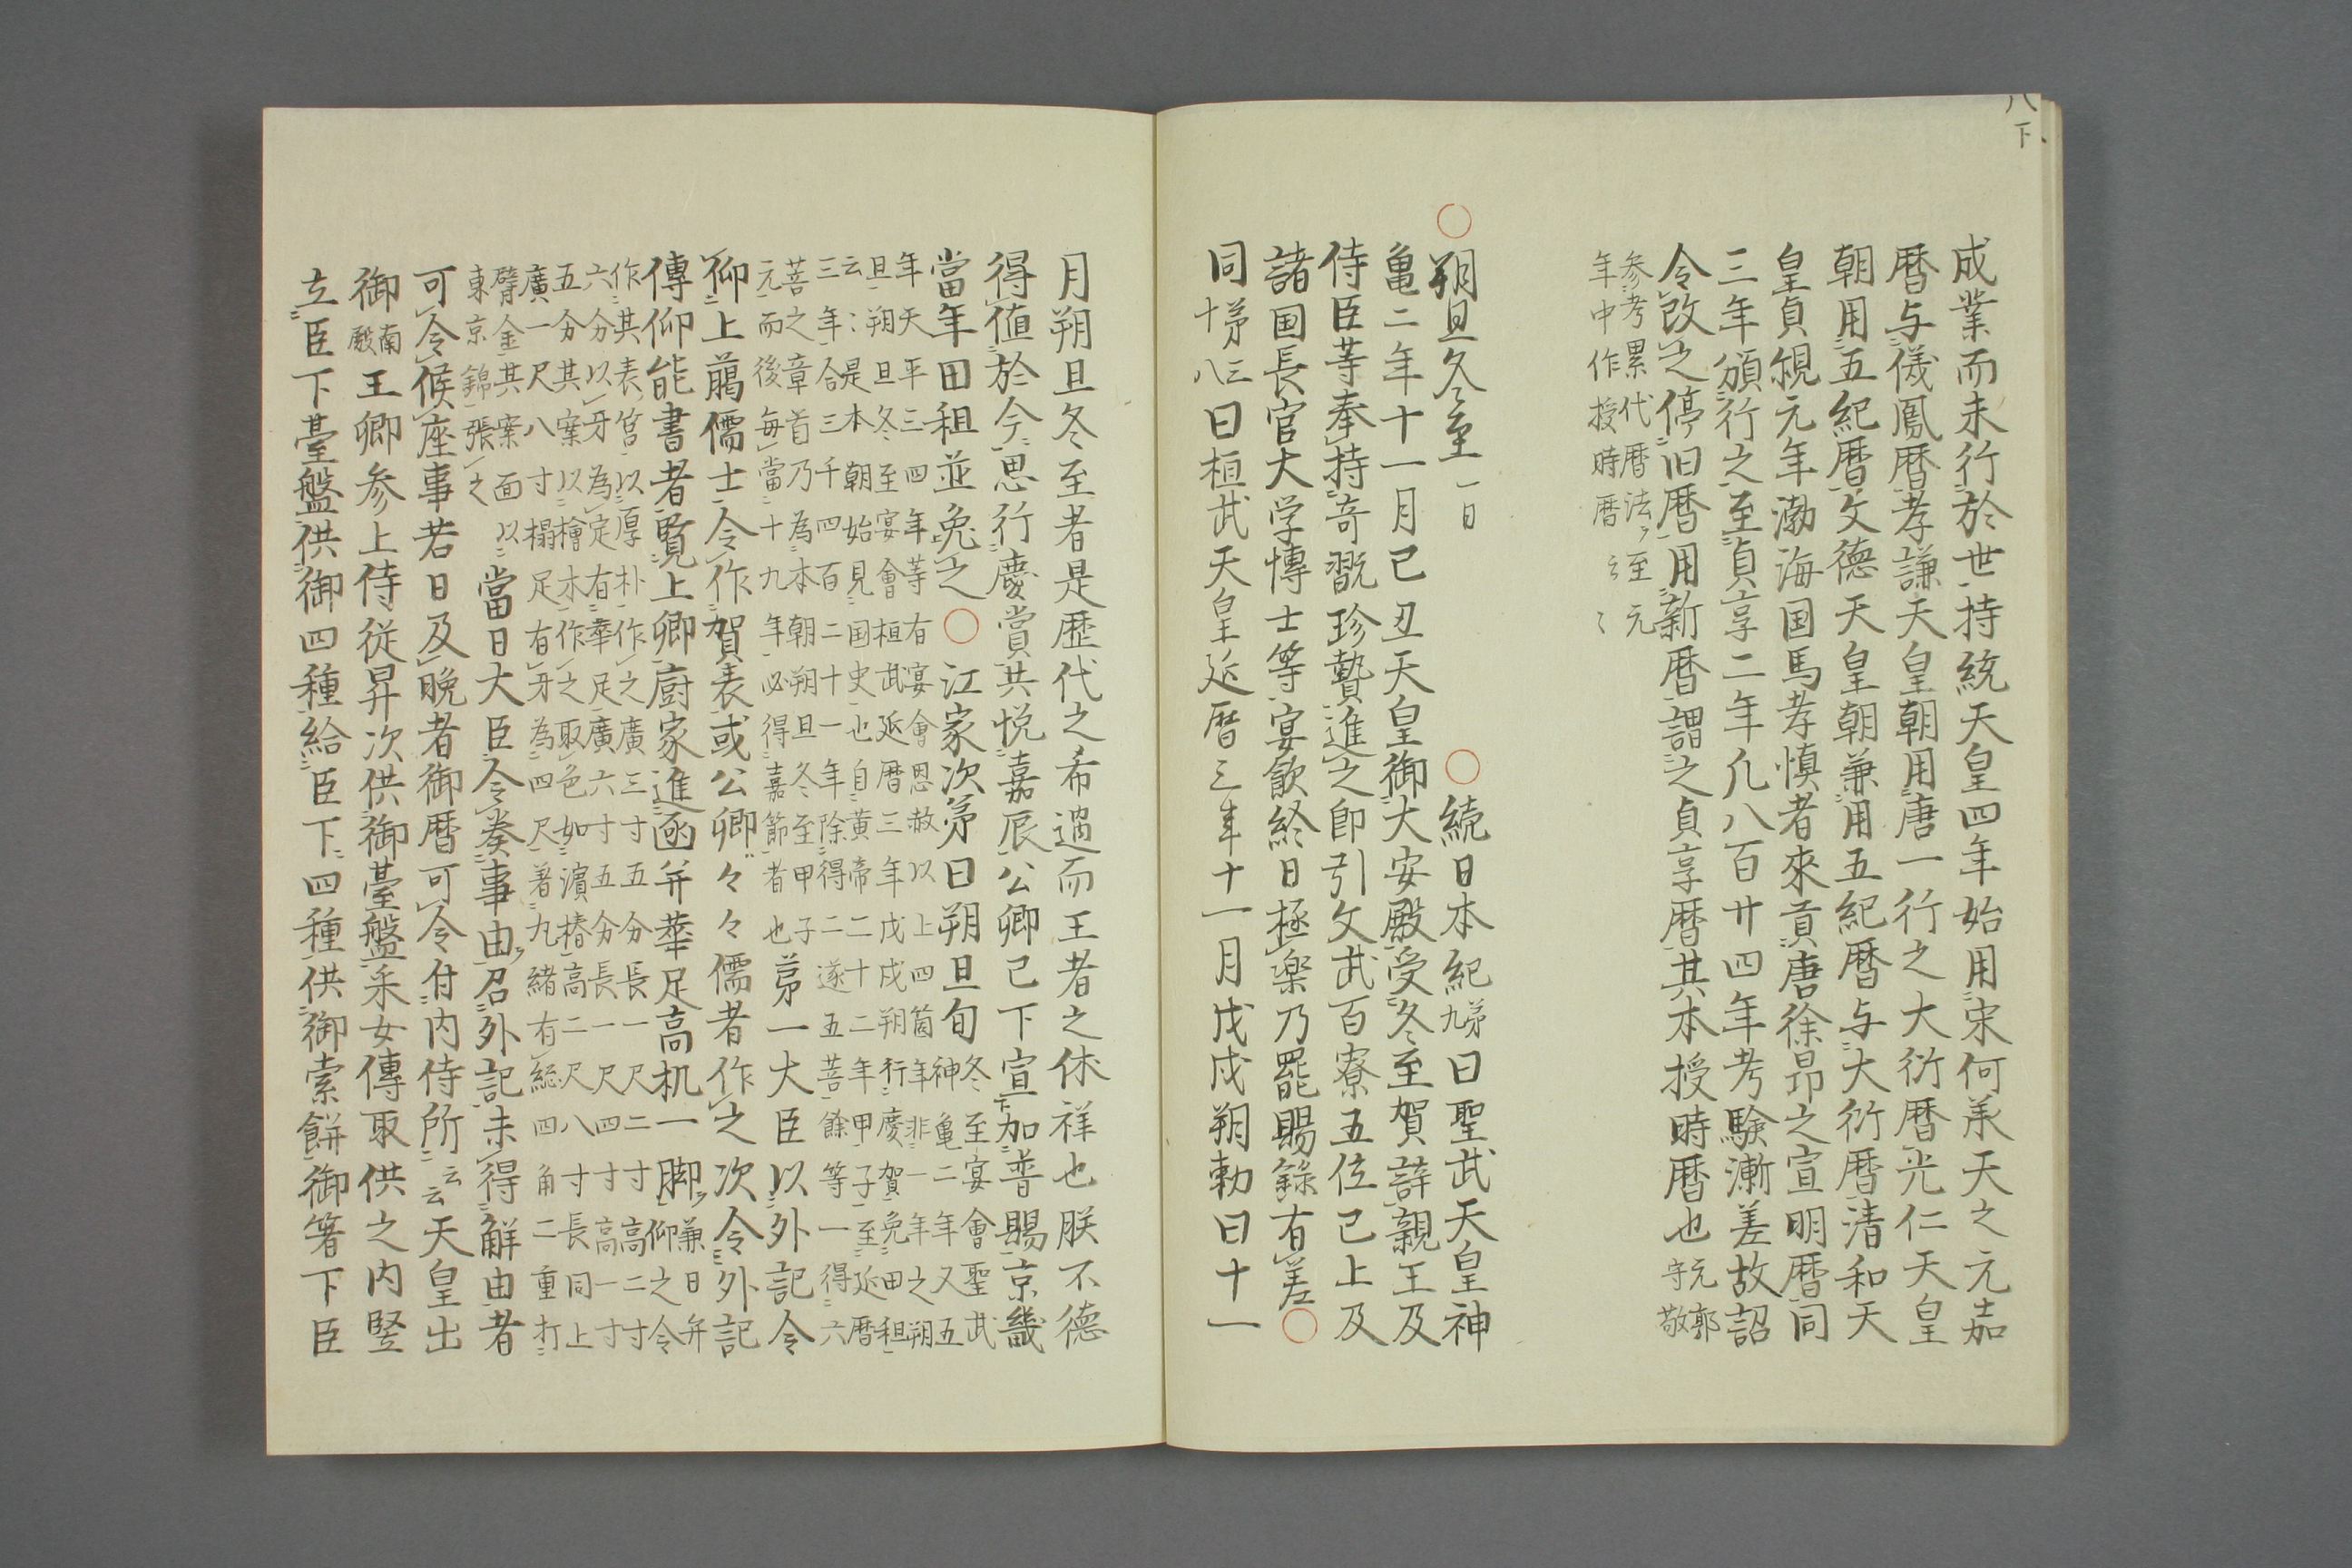 八下
成業而未行於世持統天皇四年始用宋何承天之元嘉
暦与儀鳳暦孝謙天皇朝用唐一行之大衍暦光仁天皇
朝用五紀暦文徳天皇朝兼用五紀暦与大衍暦清和天
皇貞観元年渤海国馬孝慎者來貢唐徐昂之宣明暦同
三年頒行之至貞享二年凡八百廿四年考験漸差故詔
令改之停旧暦用新暦謂之貞享暦其本授時暦也元郭守敬
参考累代暦法至元
年中作授時暦云々
○朔旦冬至一日 ○続日本紀第九曰聖武天皇神
亀二年十一月己丑天皇御大安殿受冬至賀辞親王及
侍臣等奉持奇翫珍贄進之即引文武百寮五位已上及
諸国長官大学博士等宴飲終日極楽乃罷賜録有差○
同第三十八曰桓武天皇延暦三年十一月戊戌朔勅曰十一
月朔旦冬至者是歴代之希遇而王者之休祥也朕不徳
得値於今思行慶賞共悦嘉辰公卿已下宣加普賜京畿
當年田租並免之○江家次第曰朔旦旬
冬至宴會聖武
神亀二年又五
年天平三四年等有宴會恩赦以上四箇年非一年之朔
旦朔旦冬至宴會桓武延暦三年戊戌朔行慶賀免田租
云々是本朝始見国史也自黄帝二十二年甲子至延暦
三年合三千四百二十一年除得二遂五菩餘等一得六
菩之章首乃為本朝朔旦冬至甲子
元而後毎當十九年必得嘉節者也
第一大臣以外記令
仰上﨟儒士令作賀表或公卿々々儒者作之次令外記
傳仰能書者覧上卿厨家進函并華足高机一脚兼日仰之并令
作其表筥以厚朴作之廣三寸五分長一尺二寸高二寸
六分以牙為定有華足廣六寸五分長一尺四寸高一寸
五分其案以檜木作之取色如濱椿高二尺八寸長同上
廣一尺八寸榻足有牙為四尺著九緒有総四角二重打
臂金其案面以
東京錦張之
當日大臣令奏事由召外記未得解由者
可令候座事若日及晩者御暦可令付内侍所云云天皇出
御南殿王卿参上侍從昇次供御臺盤采女傳取供之内竪
立臣下臺盤供御四種給臣下四種供御索餅御箸下臣